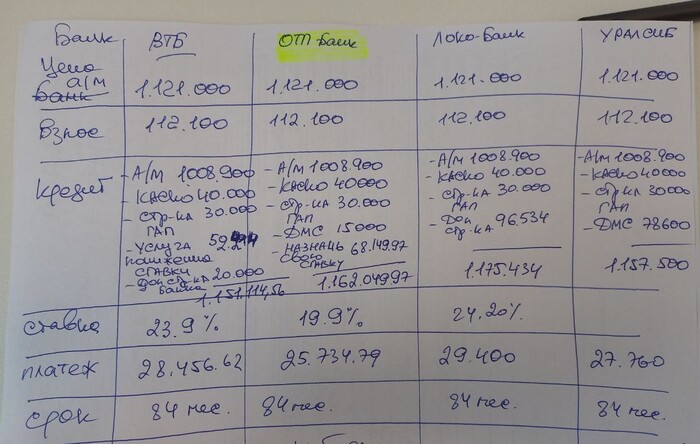 Банк ВТБ ОТП Банк Локо-Банк УРАЛСИБ
Цена
а/м
Банк
1.121.000 1.121.000 1.121.000 1.121.000
Взнос 112.100 112.100 112.100 112.100
Кредит
- А/М 1008.900
- КАСКО 40.000
- стр-ка 30.000
ГАП
- Услуга
понижения
ставки
- Доп стр-ка 20.000
банка
1.151.114,56
- А/М 1008.900
- КАСКО 40000
- стр-ка 30.000
ГАП
- ДМС 15000
- НАЗНАЧЬ 68.149.97
свою
ставку
1.162.049.97
- А/М 1008.900
- КАСКО 40.000
- стр-ка 30.000
ГАП
- Доп 96.534
стр-ка
1.175.434
- А/М 1008.900
- КАСКО 40000
- стр-ка 30000
ГАП
- ДМС 78600
1.157.500
ставка 23.9% 19.9% 24,20%
платеж 28.456.62 25.734.79 29.400 27.760
срок 84 мес. 84 мес. 84 мес. 84 мес.